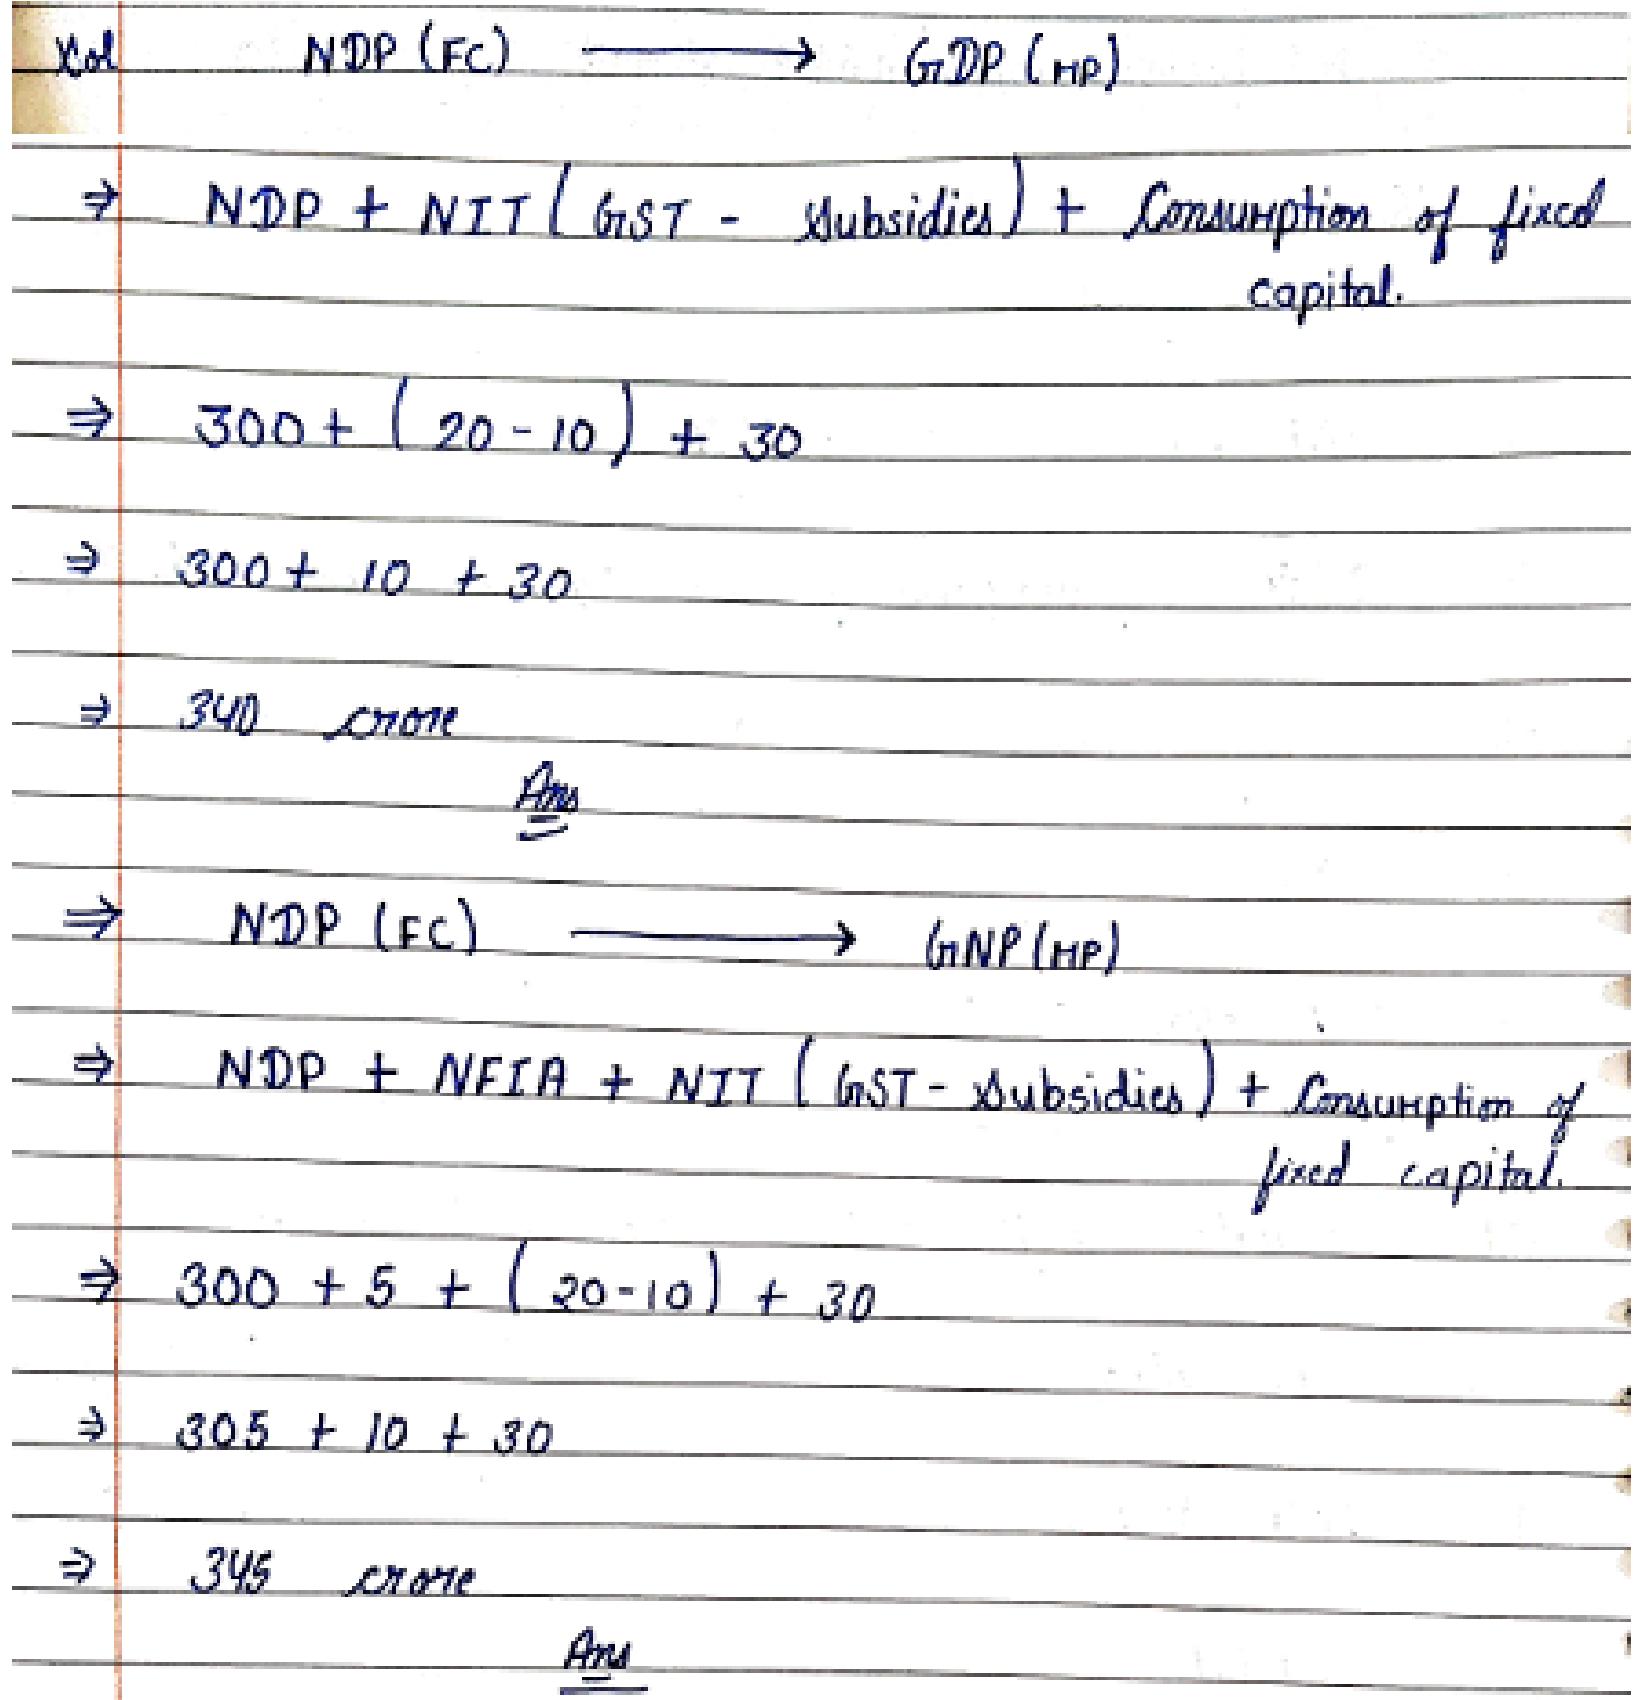 Sol NDP (FC) ⟶ GDP (MP)
⇒ NDP + NIT ( GST - Subsidies ) + Consumption of fixed
capital.
⇒ 300 + ( 20 - 10 ) + 30
⇒ 300 + 10 + 30
⇒ 340 crore
Ans
⇒ NDP (FC) ⟶ GNP (MP)
⇒ NDP + NFIA + NIT ( GST - Subsidies ) + Consumption of
fixed capital.
⇒ 300 + 5 + ( 20 - 10 ) + 30
⇒ 305 + 10 + 30
⇒ 345 crore
Ans